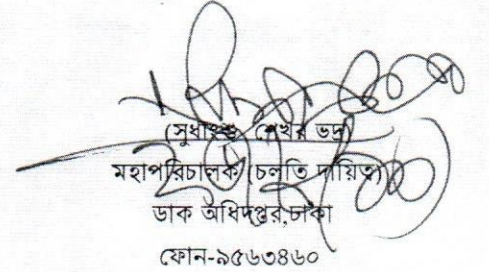 (সুধাংশু শেখর ভদ্র)
মহাপরিচালক (চলতি দায়িত্ব)
ডাক অধিদপ্তর,ঢাকা
ফোন-৯৫৬৩৪৬০